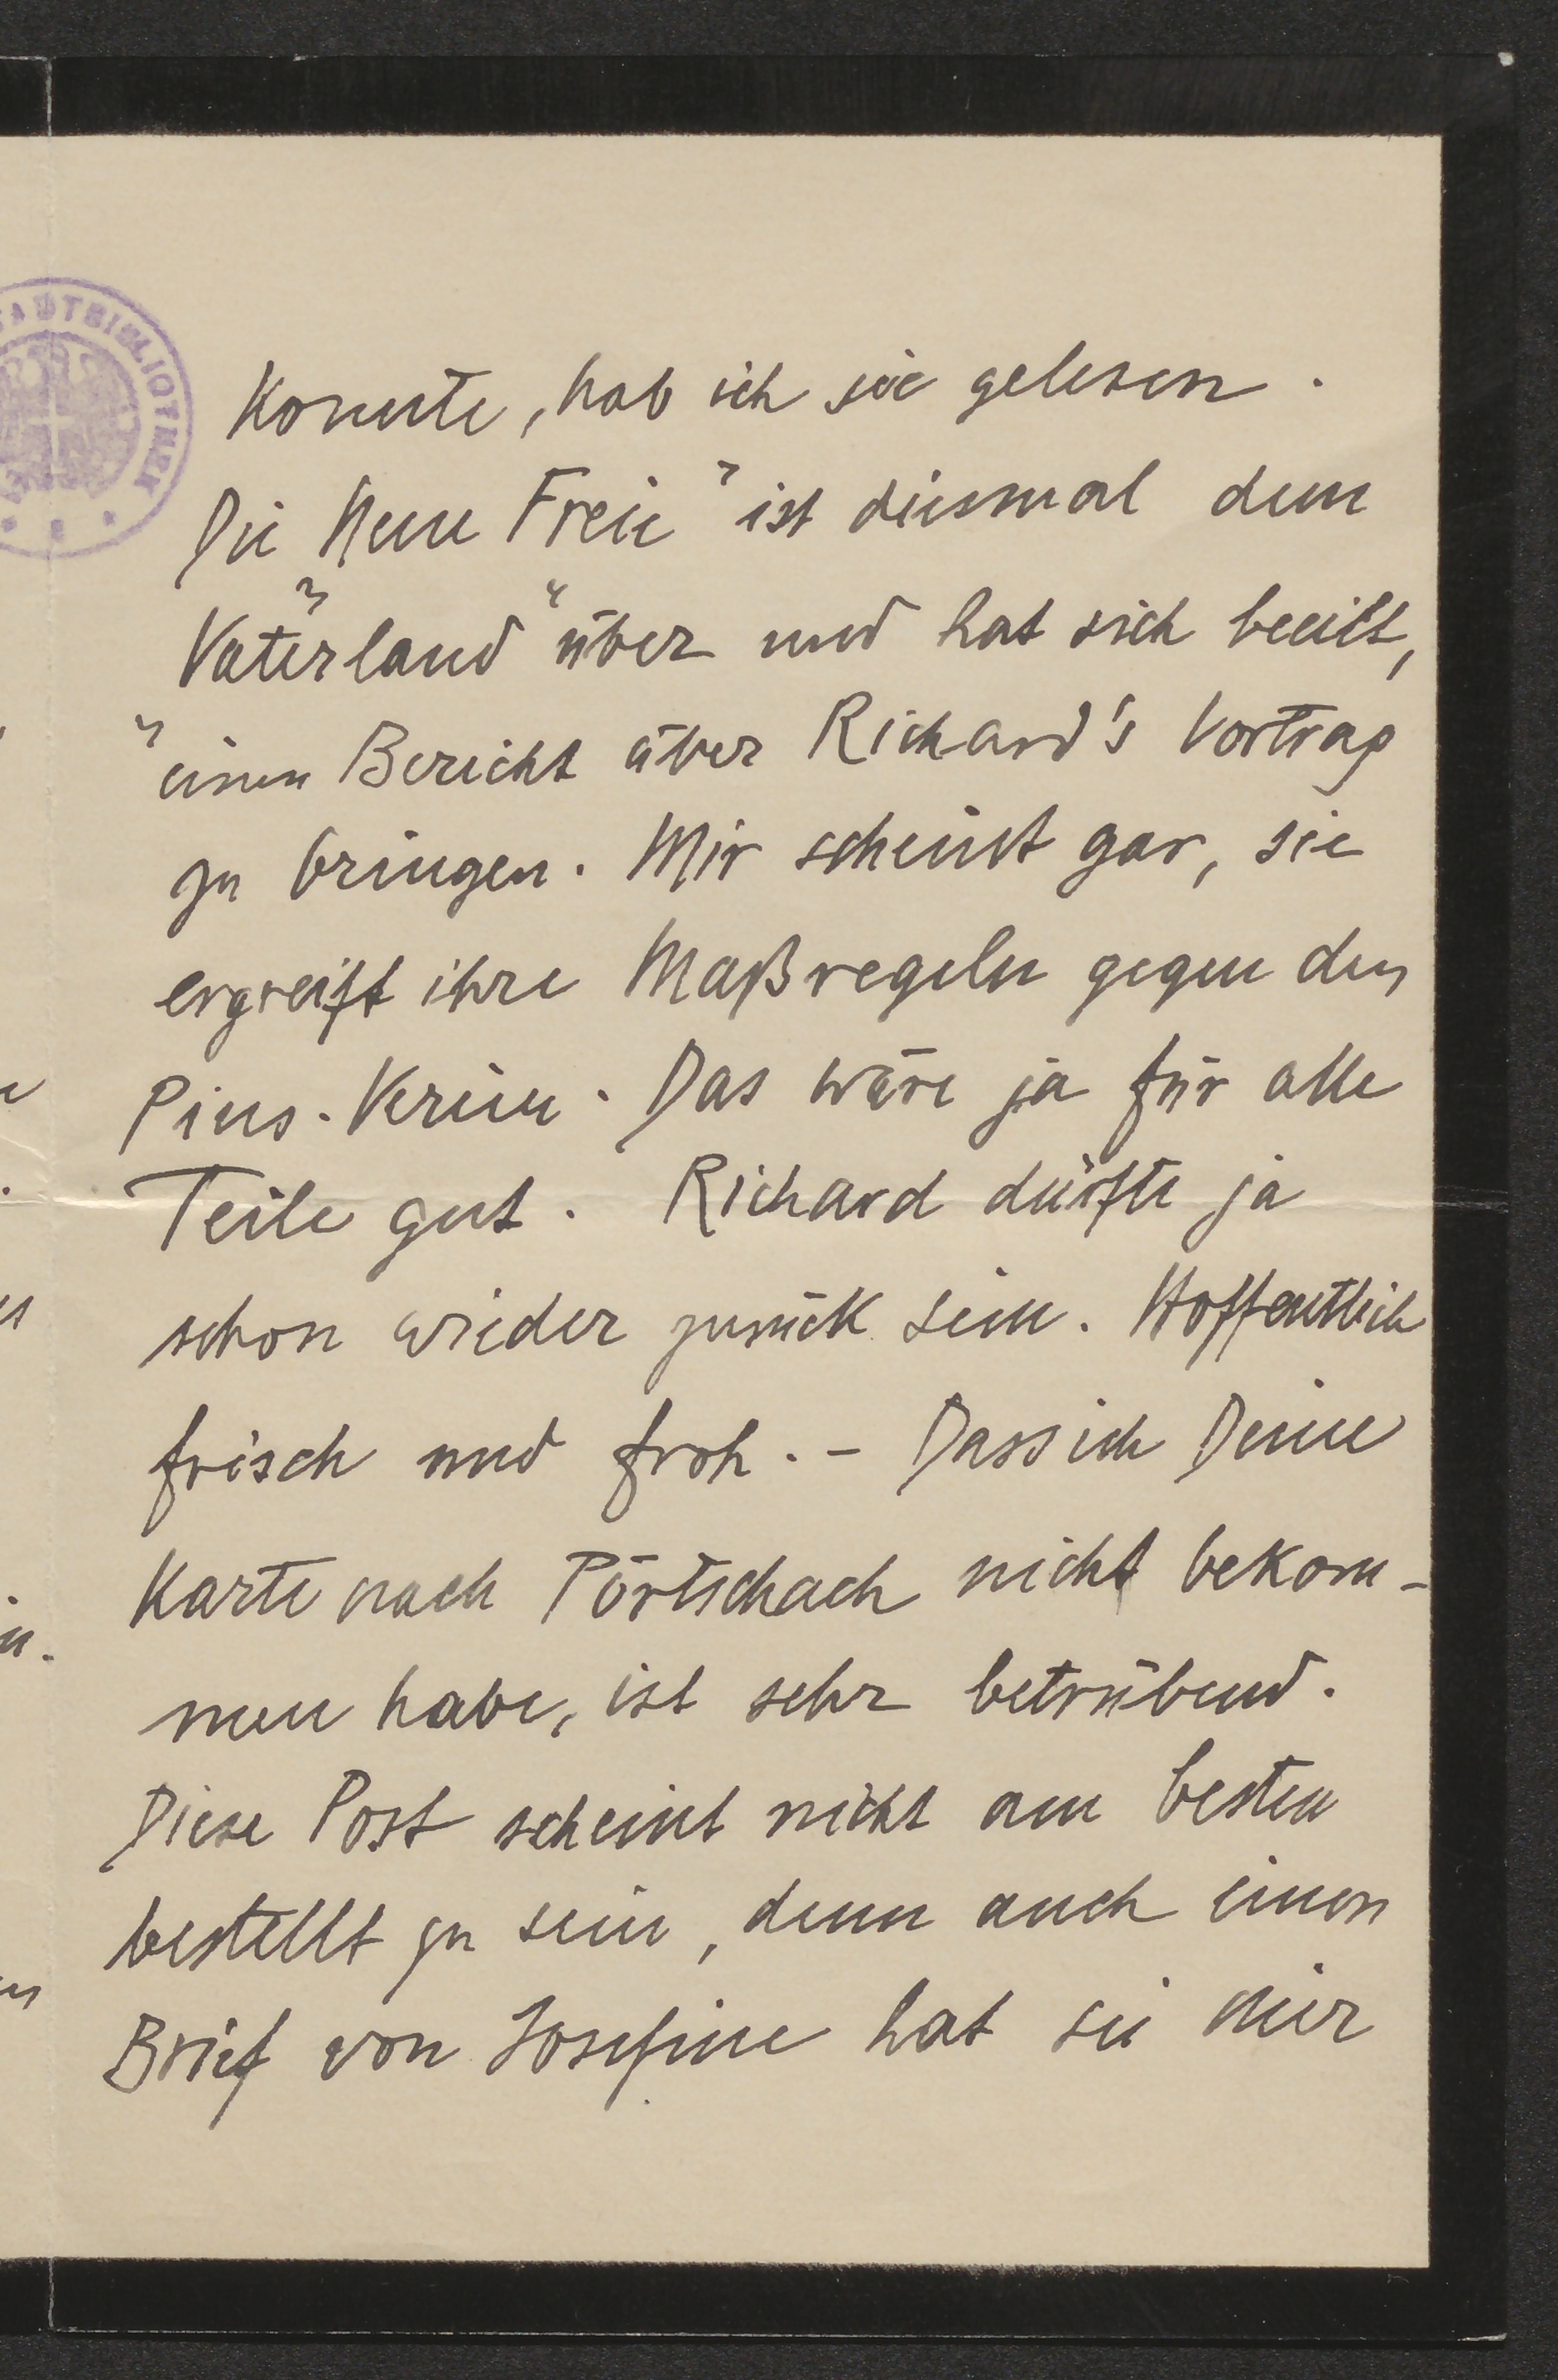 STADTBIBLIOTHEK
konnte, hab ich sie gelesen.
Die „Neue Freie“ ist diesmal dem
„Vaterland“ über und hat sich beeilt,
einen Bericht über Richard's Vortrag
zu bringen. Mir scheint gar, sie
ergreift ihre Maßregeln gegen den
Pius-Verein. Das wäre ja für alle
Teile gut. Richard dürfte ja
schon wieder zurück sein. Hoffentlich
frisch und froh. – Dass ich Deine
Karte nach Pörtschach nicht bekom-
men habe, ist sehr betrübend.
Diese Post scheint nicht am besten
bestellt zu sein, denn auch einen
Brief von Josefine hat sie mir